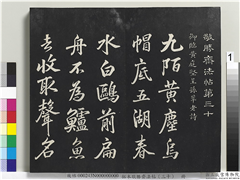 敬勝齋法帖第三十
御臨黃庭堅
九陌黃塵烏
帽底五湖春
水白鷗前扁
舟不為鱸魚
去收取聲名